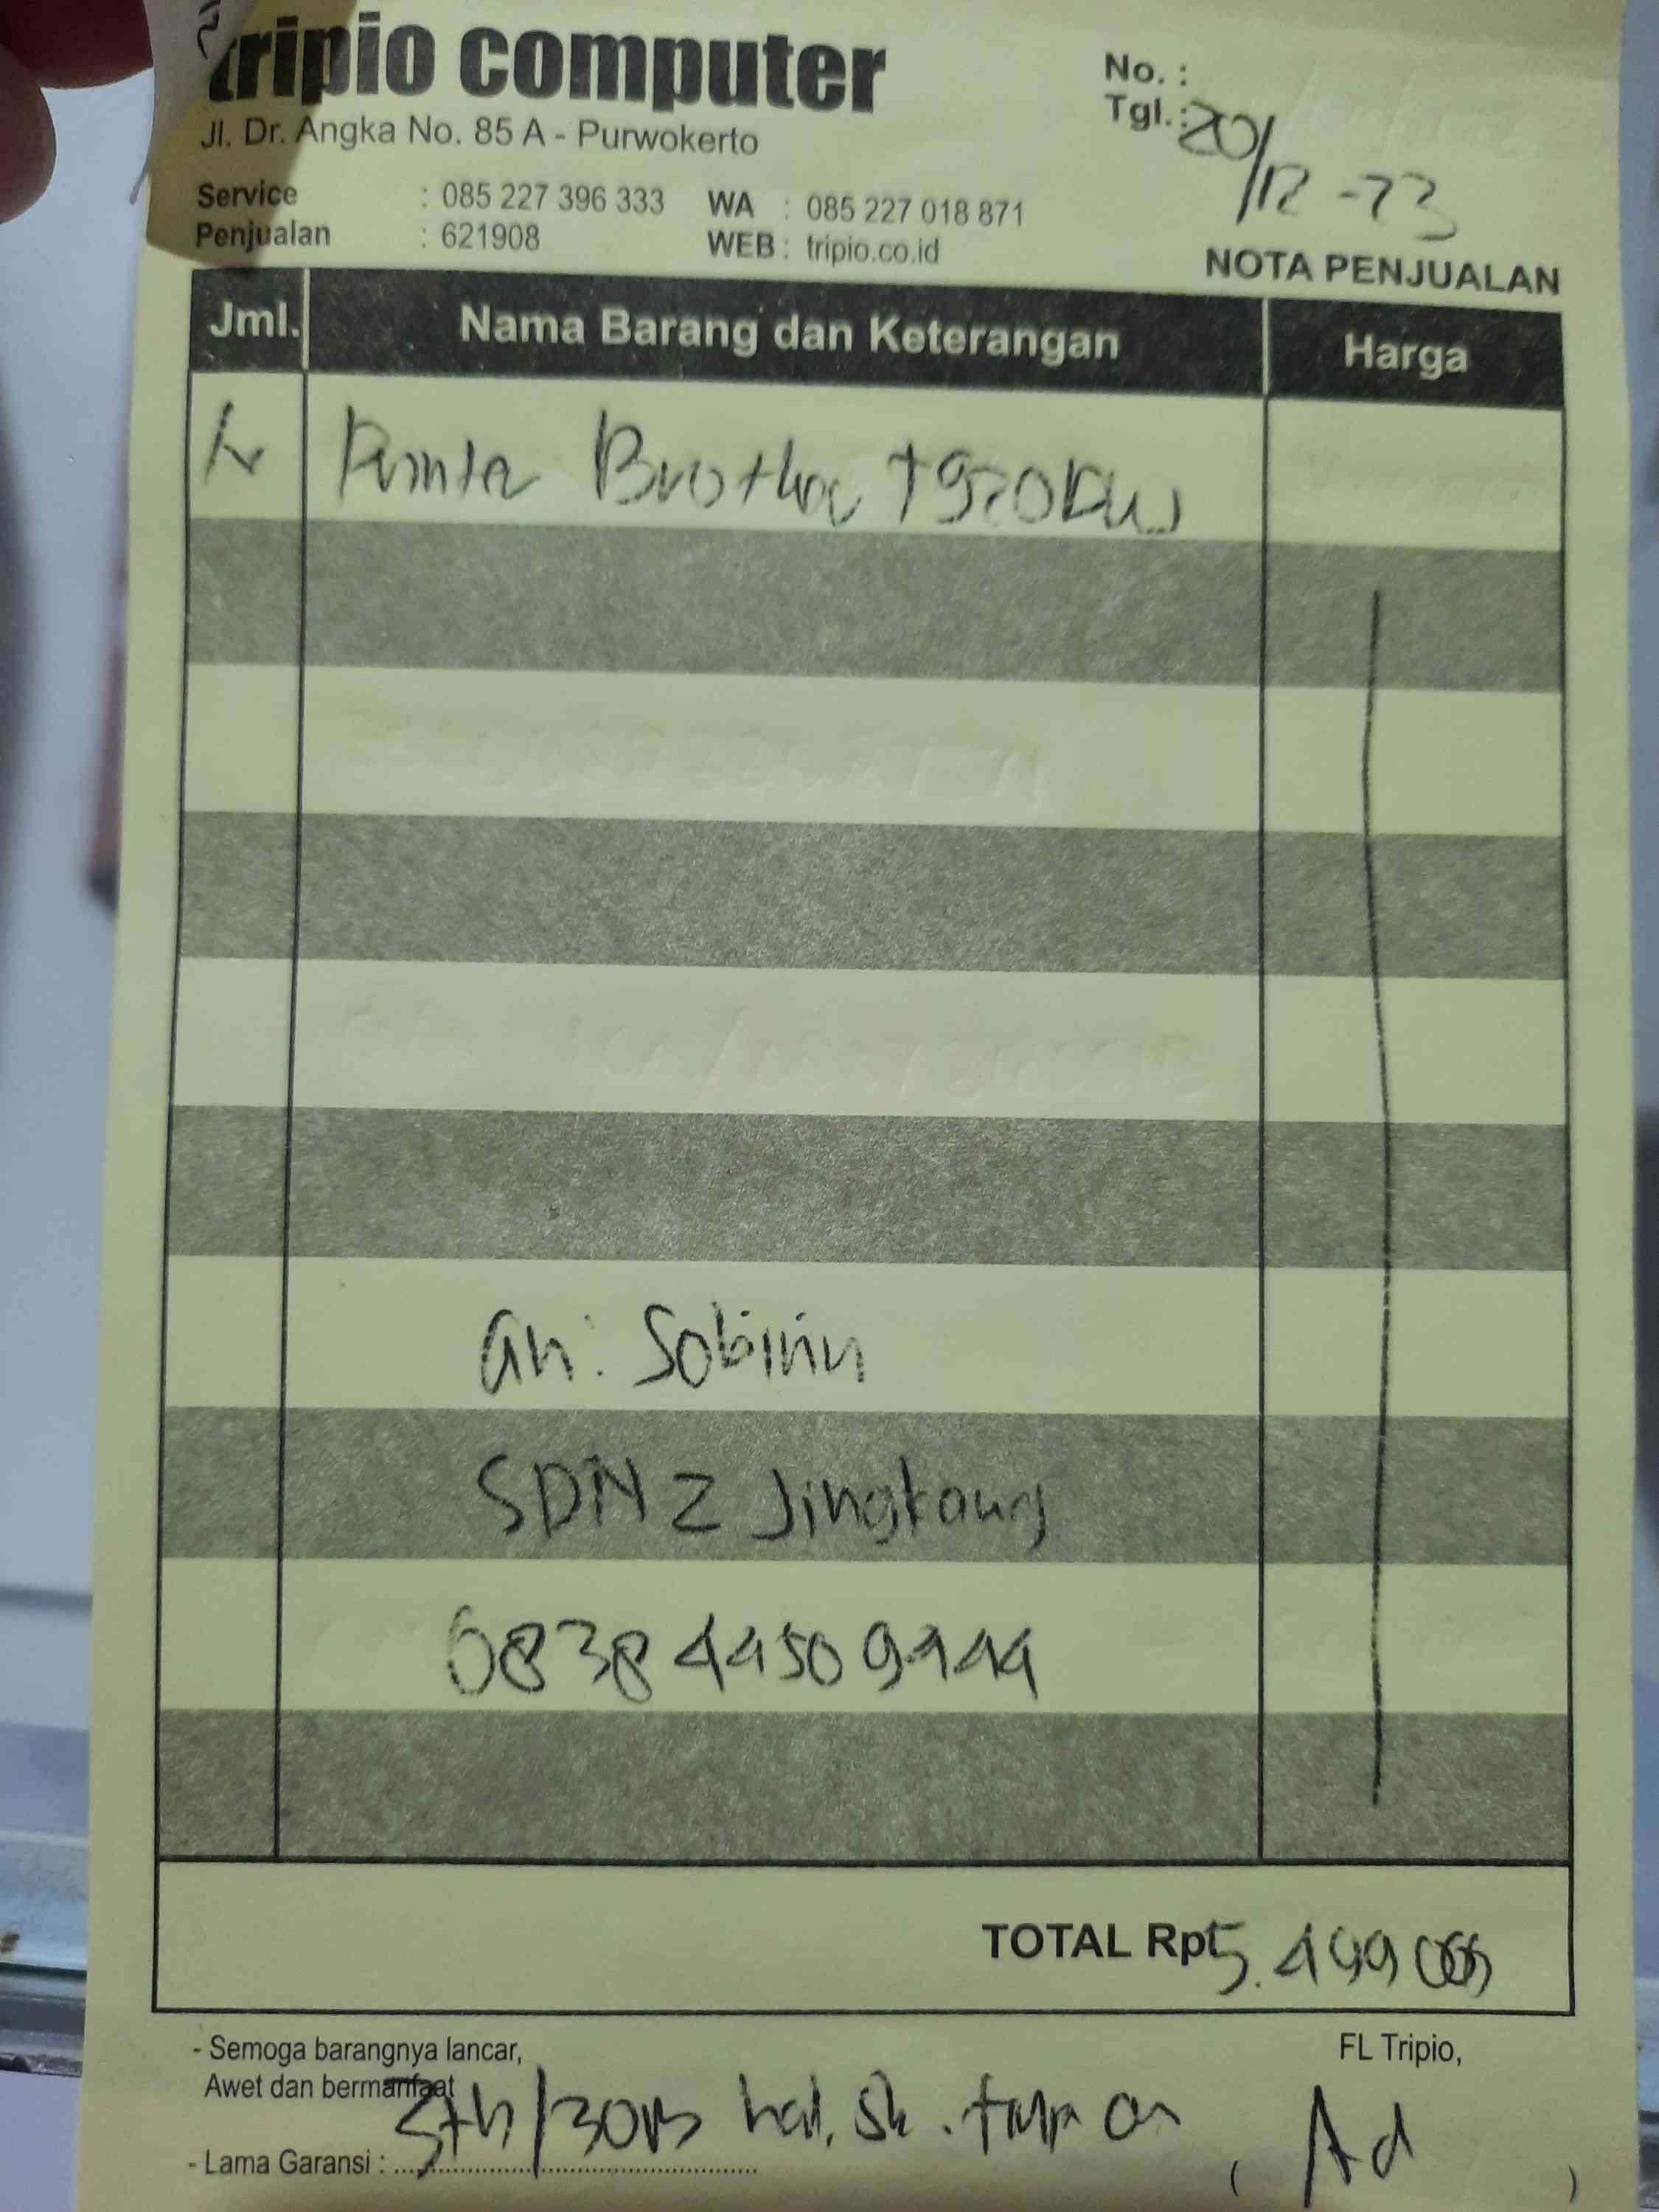 tripio computer
Jl. Dr. Angka No. 85 A - Purwokerto
Service : 085 227 396 333 WA : 085 227 018 871
Penjualan : 621908 WEB : tripio.co.id
No. :
Tgl.: 20/12-23
NOTA PENJUALAN
Jml. Nama Barang dan Keterangan Harga
Printer Brother T920DW
an: Sobirin
SDN 2 Jingkang
TOTAL Rp 5.499.000
- Semoga barangnya lancar,
Awet dan bermanfaat
FL Tripio,
- Lama Garansi : 3th/30rb hal,
( Ad )